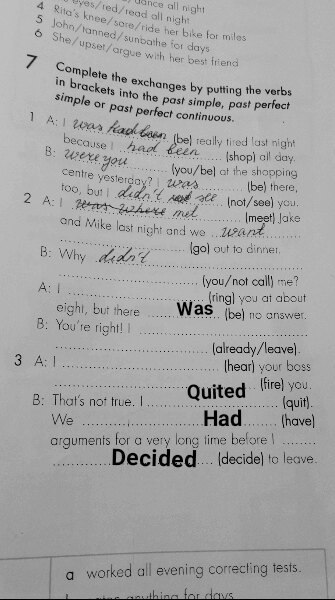 dance all night
eyes/red/read all night
4 Rita's knee/sore/ride her bike for miles
5 John/tanned/sunbathe for days
6 She/upset/argue with her best friend
7 Complete the exchanges by putting the verbs
in brackets into the past simple, past perfect
simple or past perfect continuous.
1 A: I was had been (be) really tired last night
because I had been (shop) all day.
B: were you (you/be) at the shopping
centre yesterday? I was (be) there,
too, but I didn't see (not/see) you.
2 A: I was where met (meet) Jake
and Mike last night and we want
(go) out to dinner.
B: Why didn't
(you/not call) me?
A: I (ring) you at about
eight, but there Was (be) no answer.
B: You're right! I
(already/leave).
3 A: I (hear) your boss
(fire) you.
B: That's not true. I Quited (quit).
We Had (have)
arguments for a very long time before I
Decided (decide) to leave.
a worked all evening correcting tests.
anything for days